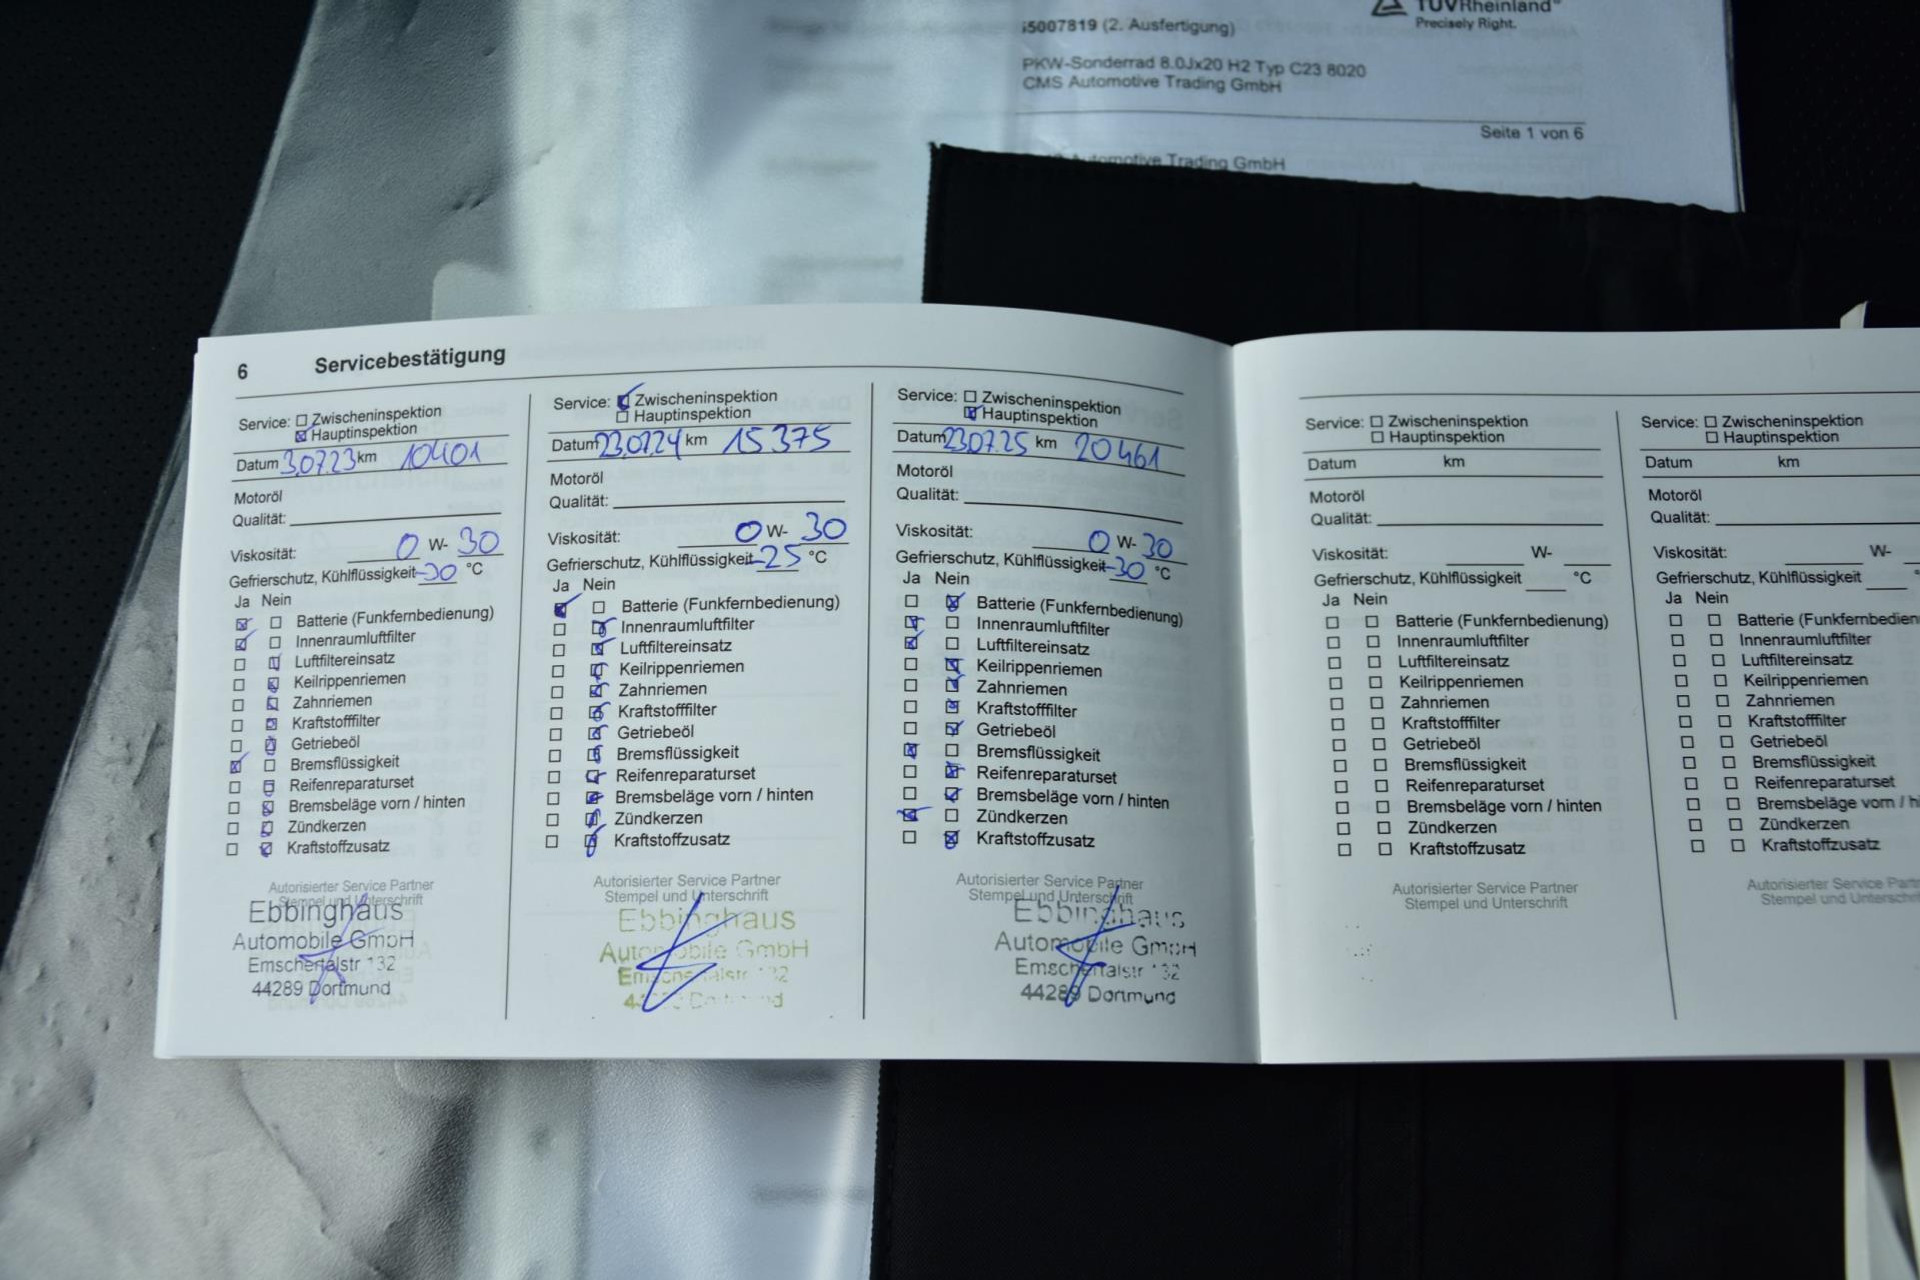 TÜVRheinland®
Precisely Right.
i5007819 (2. Ausfertigung)
PKW-Sonderrad 8.0Jx20 H2 Typ C23 8020
CMS Automotive Trading GmbH
Seite 1 von 6
Automotive Trading GmbH
6 Servicebestätigung
Service: Zwischeninspektion
Hauptinspektion
Datum 3.07.23 km 10401
Motoröl
Qualität:
Viskosität: 0 W- 30
Gefrierschutz, Kühlflüssigkeit -30 °C
Ja Nein
Batterie (Funkfernbedienung)
Innenraumluftfilter
Luftfiltereinsatz
Keilrippenriemen
Zahnriemen
Kraftstofffilter
Getriebeöl
Bremsflüssigkeit
Reifenreparaturset
Bremsbeläge vorn / hinten
Zündkerzen
Kraftstoffzusatz
Autorisierter Service Partner
Stempel und Unterschrift
Ebbinghaus
Automobile GmbH
Emschertalstr 132
44289 Dortmund
Service: Zwischeninspektion
Hauptinspektion
Datum 23.07.24 km 15375
Motoröl
Qualität:
Viskosität: 0 W- 30
Gefrierschutz, Kühlflüssigkeit -25 °C
Ja Nein
Batterie (Funkfernbedienung)
Innenraumluftfilter
Luftfiltereinsatz
Keilrippenriemen
Zahnriemen
Kraftstofffilter
Getriebeöl
Bremsflüssigkeit
Reifenreparaturset
Bremsbeläge vorn / hinten
Zündkerzen
Kraftstoffzusatz
Autorisierter Service Partner
Stempel und Unterschrift
Ebbinghaus
Automobile GmbH
Service: Zwischeninspektion
Hauptinspektion
Datum 23.07.25 km 20461
Motoröl
Qualität:
Viskosität: 0 W- 30
Gefrierschutz, Kühlflüssigkeit -30 °C
Ja Nein
Batterie (Funkfernbedienung)
Innenraumluftfilter
Luftfiltereinsatz
Keilrippenriemen
Zahnriemen
Kraftstofffilter
Getriebeöl
Bremsflüssigkeit
Reifenreparaturset
Bremsbeläge vorn / hinten
Zündkerzen
Kraftstoffzusatz
Autorisierter Service Partner
Stempel und Unterschrift
Ebbinghaus
Automobile GmbH
Emschertalstr 132
44289 Dortmund
Service: Zwischeninspektion
Hauptinspektion
Datum km
Motoröl
Qualität:
Viskosität: W-
Gefrierschutz, Kühlflüssigkeit °C
Ja Nein
Batterie (Funkfernbedienung)
Innenraumluftfilter
Luftfiltereinsatz
Keilrippenriemen
Zahnriemen
Kraftstofffilter
Getriebeöl
Bremsflüssigkeit
Reifenreparaturset
Bremsbeläge vorn / hinten
Zündkerzen
Kraftstoffzusatz
Autorisierter Service Partner
Stempel und Unterschrift
Service: Zwischeninspektion
Hauptinspektion
Datum km
Motoröl
Qualität:
Viskosität: W-
Gefrierschutz, Kühlflüssigkeit °
Ja Nein
Batterie (Funkfernbedien
Innenraumluftfilter
Luftfiltereinsatz
Keilrippenriemen
Zahnriemen
Kraftstofffilter
Getriebeöl
Bremsflüssigkeit
Reifenreparaturset
Bremsbeläge vorn / hi
Zündkerzen
Kraftstoffzusatz
Autorisierter Service Part
Stempel und Unterschrif